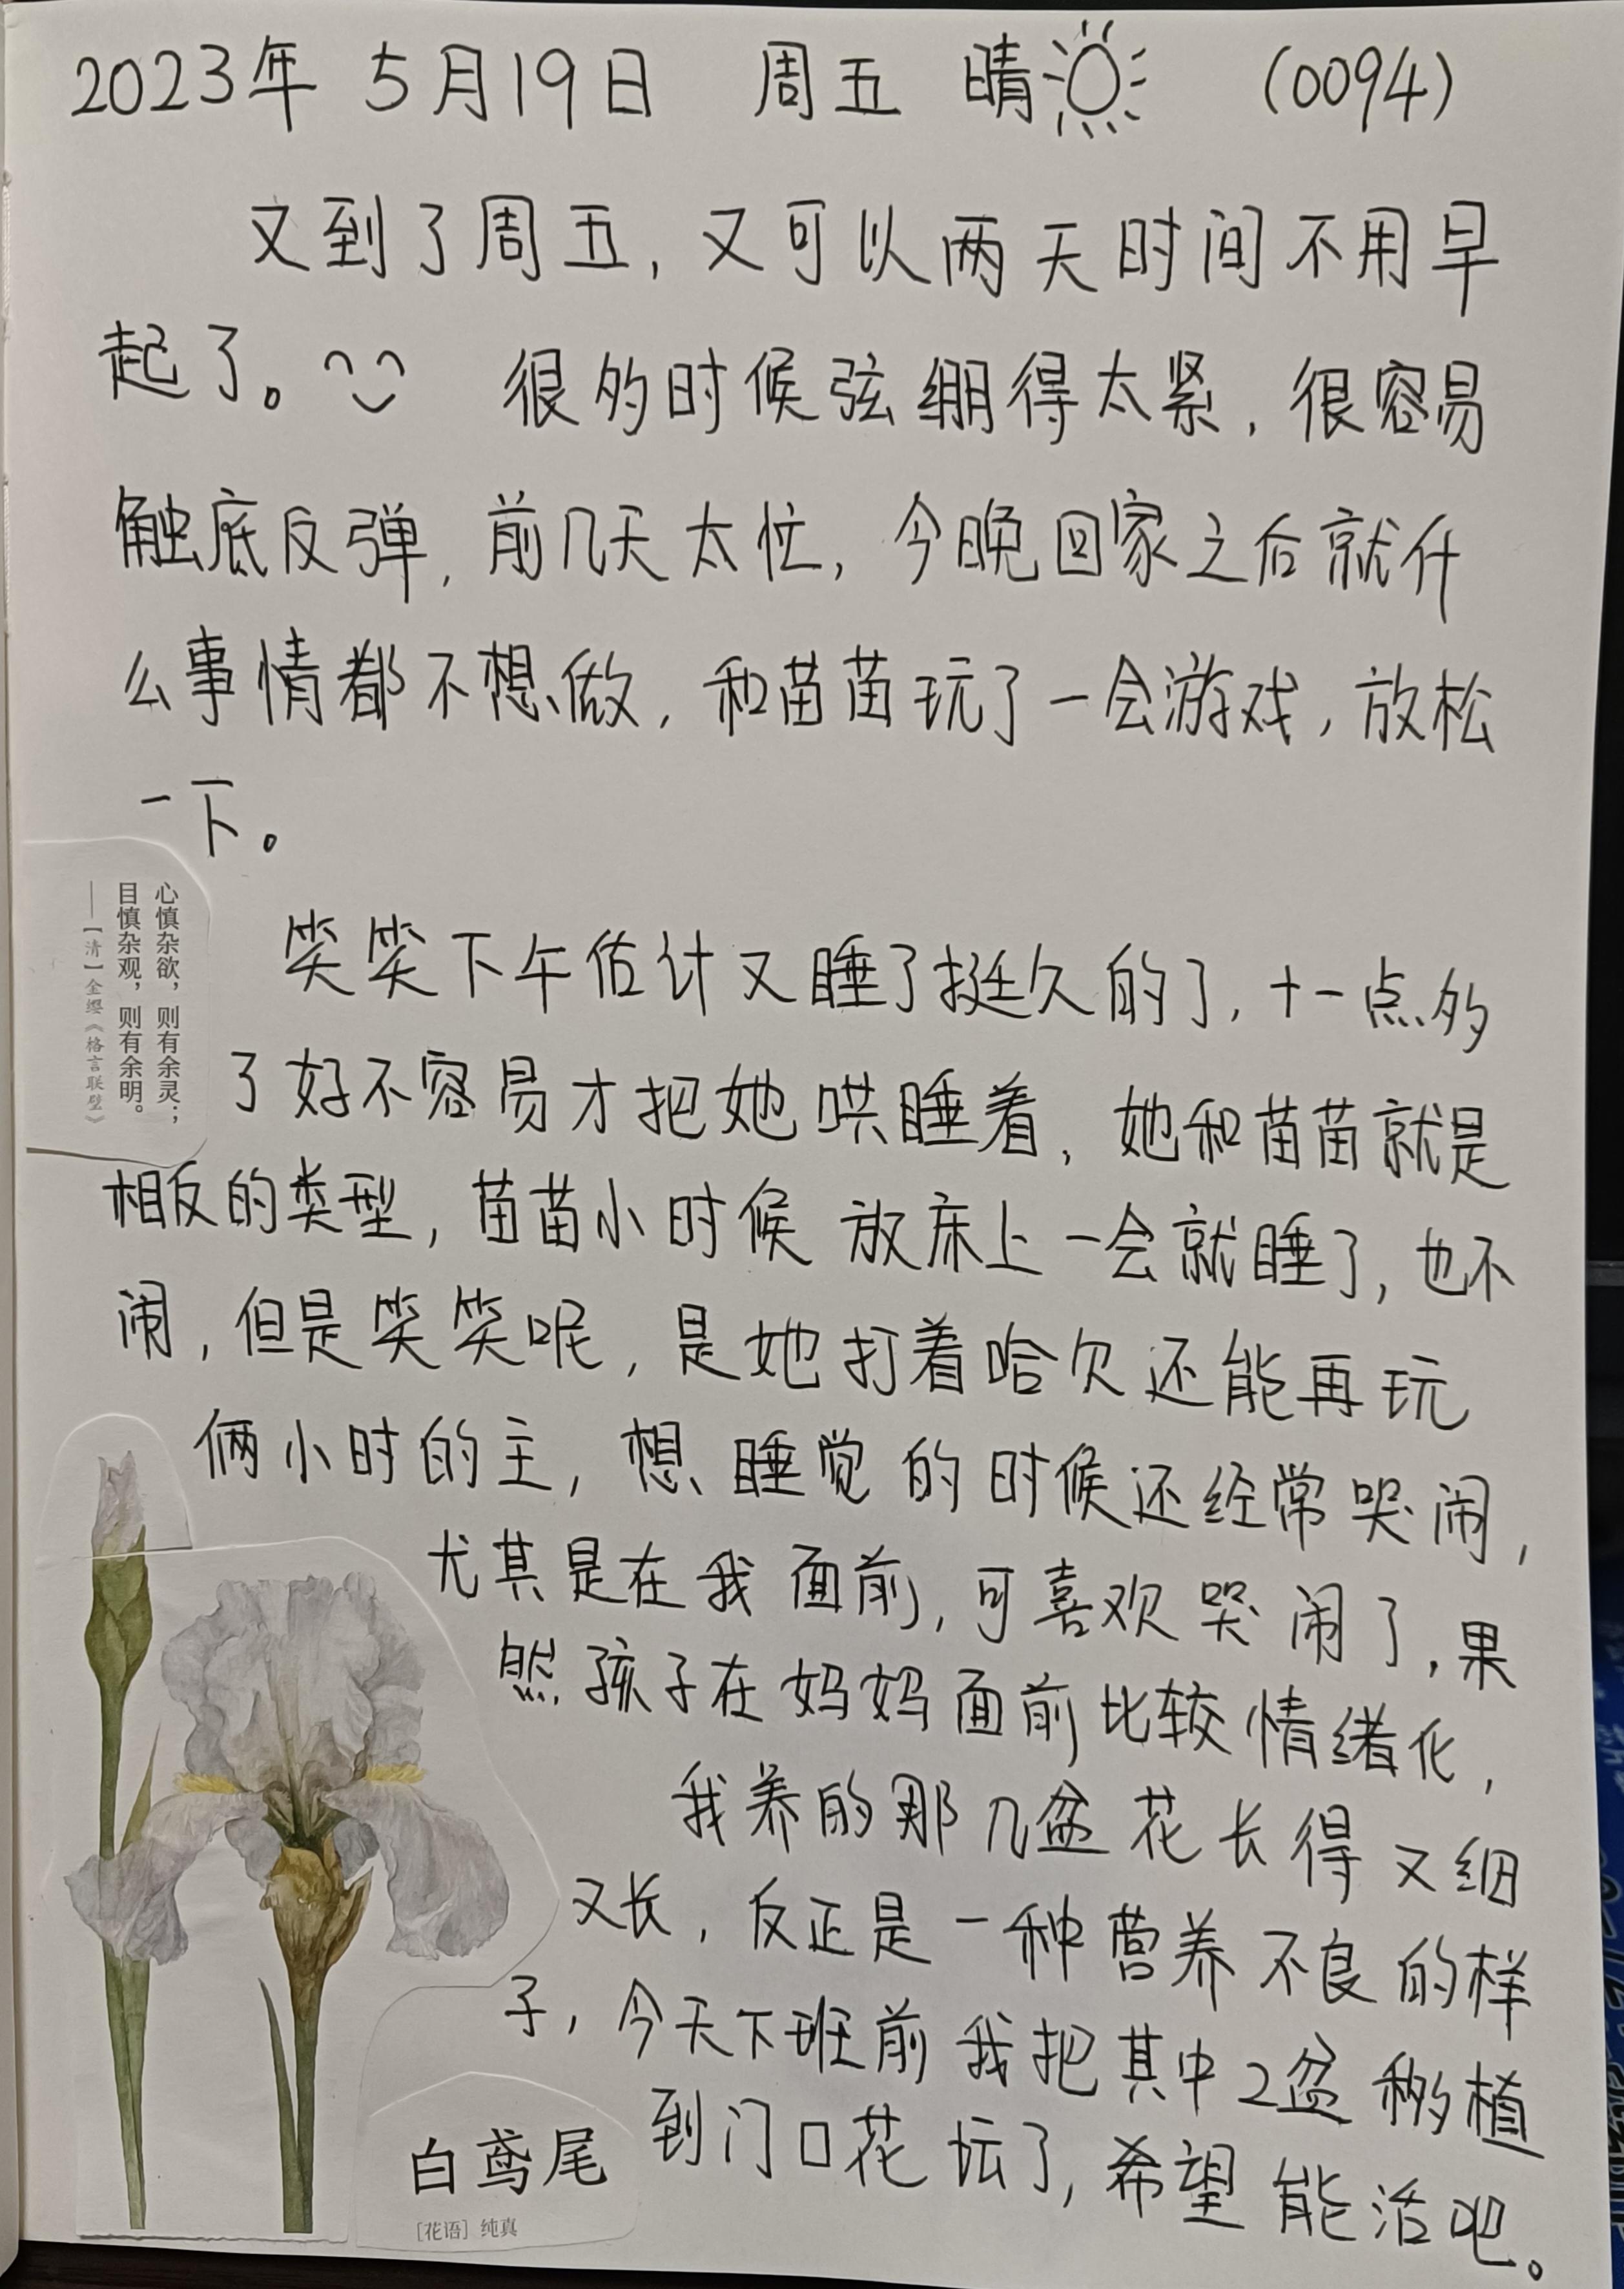 2023年 5月19日 周五 晴 (0094)
又到了周五，又可以两天时间不用早
起了。很多时候弦绷得太紧，很容易
触底反弹，前几天太忙，今晚回家之后就什
么事情都不想做，和苗苗玩了一会游戏，放松
一下。
心慎杂欲，则有余灵；
目慎杂观，则有余明。
——［清］金缨《格言联璧》
笑笑下午估计又睡了挺久的了，十一点多
了好不容易才把她哄睡着，她和苗苗就是
相反的类型，苗苗小时候放床上一会就睡了，也不
闹，但是笑笑呢，是她打着哈欠还能再玩
俩小时的主，想睡觉的时候还经常哭闹，
尤其是在我面前，可喜欢哭闹了，果
然孩子在妈妈面前比较情绪化，
我养的那几盆花长得又细
又长，反正是一种营养不良的样
子，今天下班前我把其中2盆移植
到门口花坛了，希望能活吧。
白鸢尾
［花语］纯真